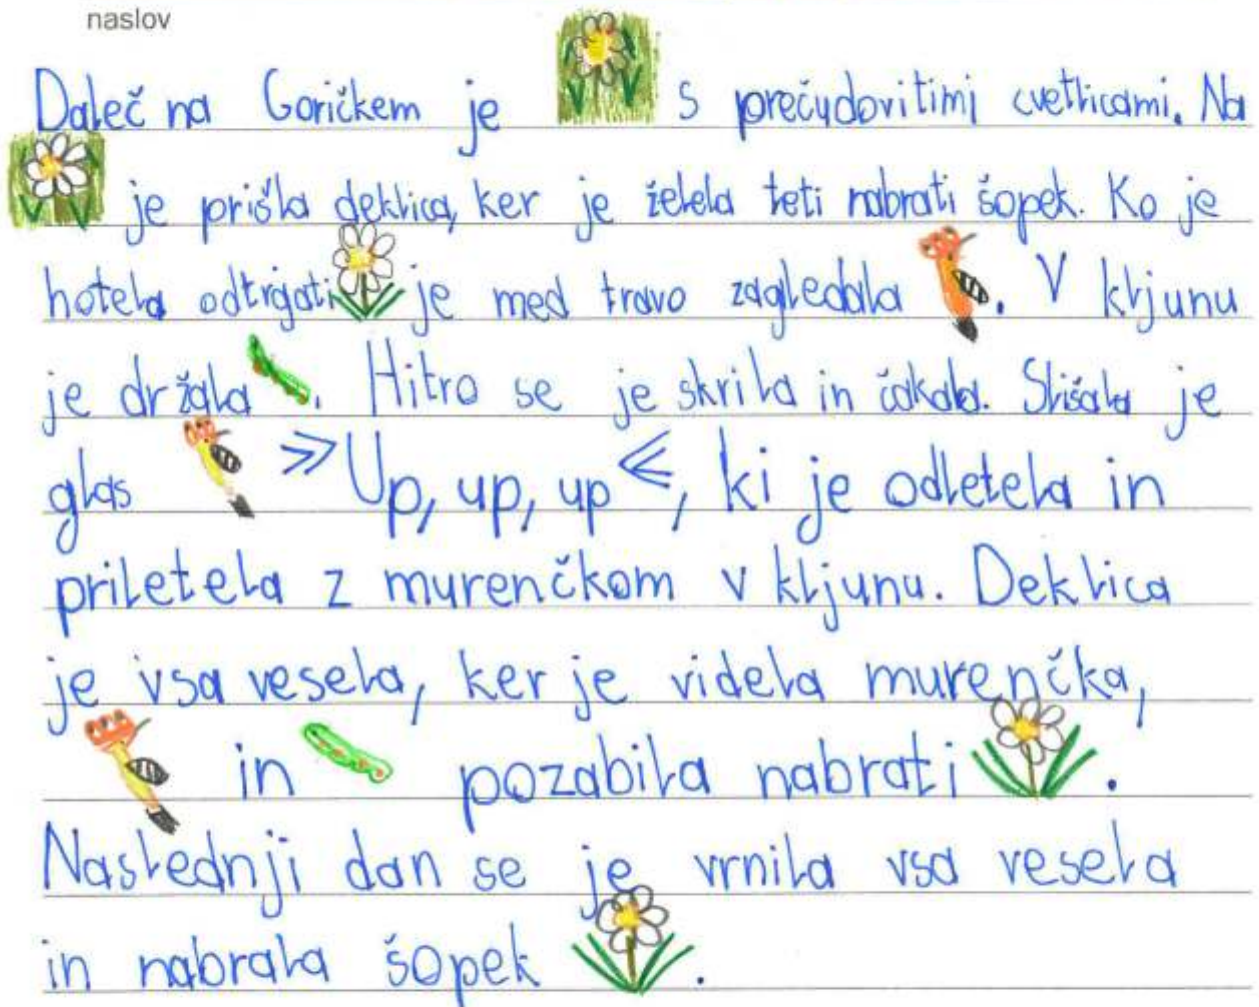 naslov
Daleč na Goričkem je s prečudovitimi cvetlicami. Na
je prišla deklica, ker je želela teti nabrati šopek. Ko je
hotela odtrgati je med travo zagledala . V kljunu
je držala . Hitro se je skrila in čakala. Slišala je
glas »Up, up, up«, ki je odletela in
priletela z murenčkom v kljunu. Deklica
je vsa vesela, ker je videla murenčka,
in pozabila nabrati .
Naslednji dan se je vrnila vsa vesela
in nabrala šopek .